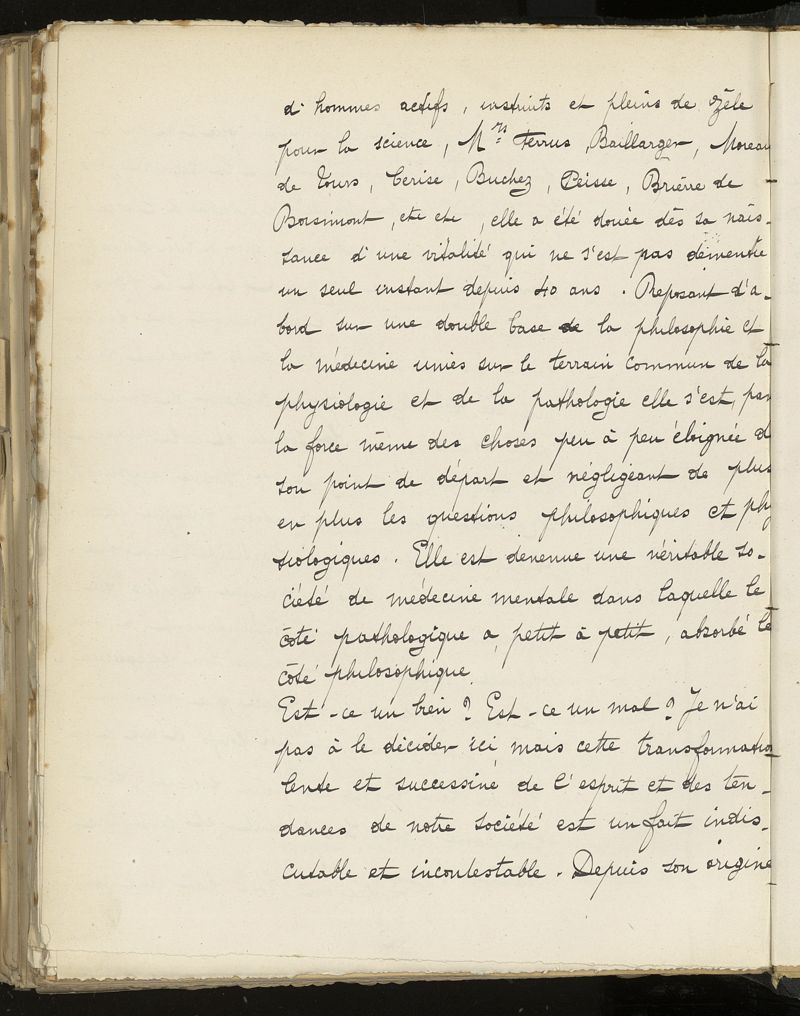 d'hommes actifs, instruits et pleins de zèle
pour la science, M.rs Ferrus, Baillarger, Moreau
de Tours, Cerise, Buchez, Peisse, Brierre de
Boismont, etc etc, elle a été douée dès sa nais-
sance d'une vitalité qui ne s'est pas démentie
un seul instant depuis 40 ans. Reposant d'a-
bord sur une double base de la philosophie et
la médecine unies sur le terrain commun de la
physiologie et de la pathologie elle s'est, par
la force même des choses peu à peu éloignée d
son point de départ et négligeant de plus
en plus les questions philosophiques et phy
siologiques. Elle est devenue une véritable so-
ciété de médecine mentale dans laquelle le
côté pathologique a, petit à petit, absorbé le
côté philosophique.
Est-ce un bien? Est-ce un mal? Je n'ai
pas à le décider ici mais cette transformation
lente et successive de l'esprit et des ten-
dances de notre société est un fait indis-
cutable et incontestable. Depuis son origine